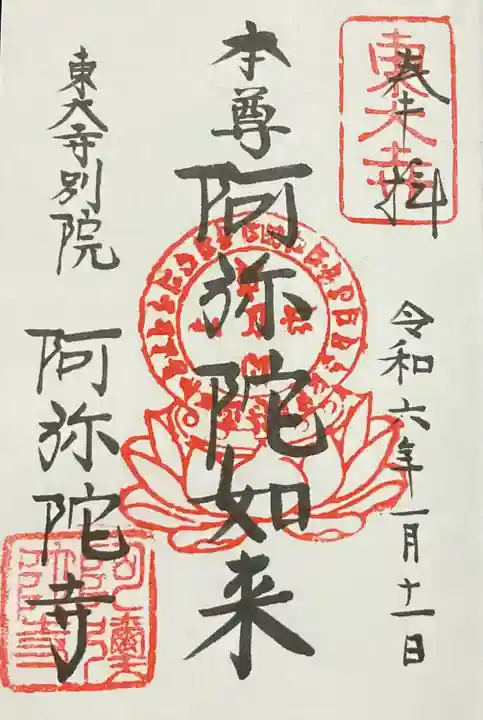 奉拝
東大寺
令和六年一月十一日
本尊 阿弥陀如来
東大寺別院 阿弥陀寺